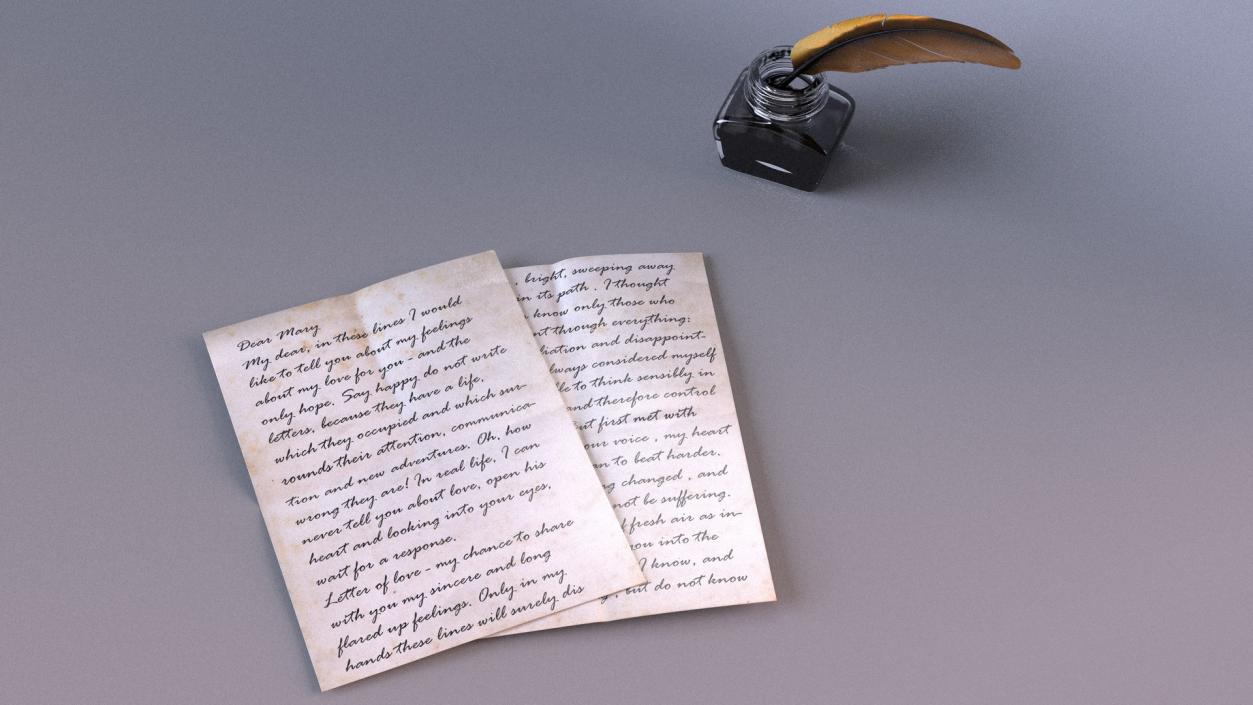 Dear Mary
My dear, in these lines I would
like to tell you about my feelings
about my love for you - and the
only hope. Say happy do not write
letters, because they have a life,
which they occupied and which sur-
rounds their attention, communica-
tion and new adventures. Oh, how
wrong they are! In real life, I can
never tell you about love, open his
heart and looking into your eyes,
wait for a response.
Letter of love - my chance to share
with you my sincere and long
flared up feelings. Only in my
hands these lines will surely dis
, bright, sweeping away
in its path . I thought
know only those who
nt through everything:
liation and disappoint-
lways considered myself
le to think sensibly in
and therefore control
ut first met with
our voice , my heart
an to beat harder.
ng changed , and
not be suffering.
f fresh air as in-
you into the
I know, and
, but do not know